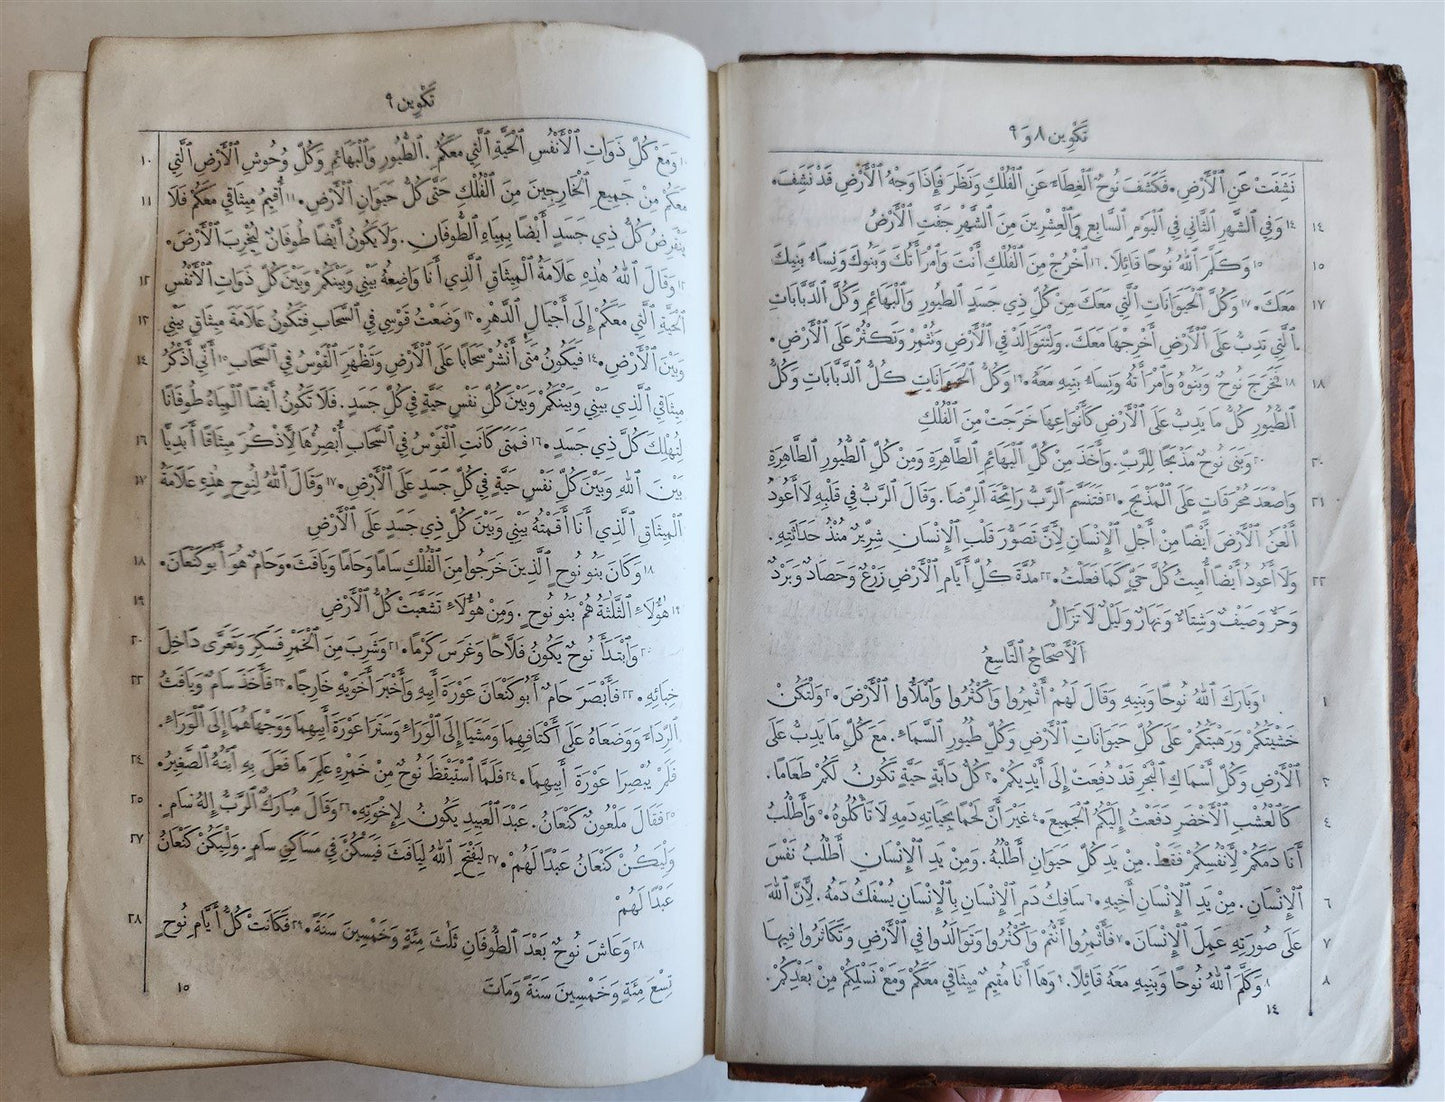 تَكْوِين ٨ و ٩
نَشِفَتْ عَنِ ٱلْأَرْضِ. فَكَشَفَ نُوحٌ ٱلْغِطَاءَ عَنِ ٱلْفُلْكِ وَنَظَرَ فَإِذَا وَجْهُ ٱلْأَرْضِ قَدْ نَشِفَ.
١٤ وَفِي ٱلشَّهْرِ ٱلثَّانِي فِي ٱلْيَوْمِ ٱلسَّابِعِ وَٱلْعِشْرِينَ مِنَ ٱلشَّهْرِ جَفَّتِ ٱلْأَرْضُ ١٤
١٥ وَكَلَّمَ ٱللهُ نُوحًا قَائِلًا. ١٦ ٱخْرُجْ مِنَ ٱلْفُلْكِ أَنْتَ وَٱمْرَأَتُكَ وَبَنُوكَ وَنِسَاءُ بَنِيكَ ١٥
مَعَكَ. ١٧ وَكُلَّ ٱلْحَيَوَانَاتِ ٱلَّتِي مَعَكَ مِنْ كُلِّ ذِي جَسَدٍ ٱلطُّيُورِ وَٱلْبَهَائِمِ وَكُلَّ ٱلدَّبَّابَاتِ ١٧
ٱلَّتِي تَدِبُّ عَلَى ٱلْأَرْضِ أَخْرِجْهَا مَعَكَ. وَلْتَتَوَالَدْ فِي ٱلْأَرْضِ وَتُثْمِرْ وَتَكْثُرْ عَلَى ٱلْأَرْضِ.
١٨ فَخَرَجَ نُوحٌ وَبَنُوهُ وَٱمْرَأَتُهُ وَنِسَاءُ بَنِيهِ مَعَهُ. ١٩ وَكُلُّ ٱلْحَيَوَانَاتِ كُلُّ ٱلدَّبَّابَاتِ وَكُلُّ ١٨
ٱلطُّيُورِ كُلُّ مَا يَدِبُّ عَلَى ٱلْأَرْضِ كَأَنْوَاعِهَا خَرَجَتْ مِنَ ٱلْفُلْكِ
٢٠ وَبَنَى نُوحٌ مَذْبَحًا لِلرَّبِّ. وَأَخَذَ مِنْ كُلِّ ٱلْبَهَائِمِ ٱلطَّاهِرَةِ وَمِنْ كُلِّ ٱلطُّيُورِ ٱلطَّاهِرَةِ ٢٠
وَأَصْعَدَ مُحْرَقَاتٍ عَلَى ٱلْمَذْبَحِ. ٢١ فَتَنَسَّمَ ٱلرَّبُّ رَائِحَةَ ٱلرِّضَا. وَقَالَ ٱلرَّبُّ فِي قَلْبِهِ لَا أَعُودُ ٢١
أَلْعَنُ ٱلْأَرْضَ أَيْضًا مِنْ أَجْلِ ٱلْإِنْسَانِ لِأَنَّ تَصَوُّرَ قَلْبِ ٱلْإِنْسَانِ شِرِّيرٌ مُنْذُ حَدَاثَتِهِ.
وَلَا أَعُودُ أَيْضًا أُمِيتُ كُلَّ حَيٍّ كَمَا فَعَلْتُ. ٢٢ مُدَّةَ كُلِّ أَيَّامِ ٱلْأَرْضِ زَرْعٌ وَحَصَادٌ وَبَرْدٌ ٢٢
وَحَرٌّ وَصَيْفٌ وَشِتَاءٌ وَنَهَارٌ وَلَيْلٌ لَا تَزَالُ
ٱلْأَصْحَاحُ ٱلتَّاسِعُ
١ وَبَارَكَ ٱللهُ نُوحًا وَبَنِيهِ وَقَالَ لَهُمْ أَثْمِرُوا وَٱكْثُرُوا وَٱمْلَأُوا ٱلْأَرْضَ. ٢ وَلْتَكُنْ ١
خَشْيَتُكُمْ وَرَهْبَتُكُمْ عَلَى كُلِّ حَيَوَانَاتِ ٱلْأَرْضِ وَكُلِّ طُيُورِ ٱلسَّمَاءِ. مَعَ كُلِّ مَا يَدِبُّ عَلَى
ٱلْأَرْضِ وَكُلِّ أَسْمَاكِ ٱلْبَحْرِ قَدْ دُفِعَتْ إِلَى أَيْدِيكُمْ. ٣ كُلُّ دَابَّةٍ حَيَّةٍ تَكُونُ لَكُمْ طَعَامًا. ٣
كَٱلْعُشْبِ ٱلْأَخْضَرِ دَفَعْتُ إِلَيْكُمُ ٱلْجَمِيعَ. ٤ غَيْرَ أَنَّ لَحْمًا بِحَيَاتِهِ دَمِهِ لَا تَأْكُلُوهُ. ٥ وَأَطْلُبُ ٤
أَنَا دَمَكُمْ لِأَنْفُسِكُمْ فَقَطْ. مِنْ يَدِ كُلِّ حَيَوَانٍ أَطْلُبُهُ. وَمِنْ يَدِ ٱلْإِنْسَانِ أَطْلُبُ نَفْسَ
ٱلْإِنْسَانِ. مِنْ يَدِ ٱلْإِنْسَانِ أَخِيهِ. ٦ سَافِكُ دَمِ ٱلْإِنْسَانِ بِٱلْإِنْسَانِ يُسْفَكُ دَمُهُ. لِأَنَّ ٱللهَ ٦
عَلَى صُورَتِهِ عَمِلَ ٱلْإِنْسَانَ. ٧ فَأَثْمِرُوا أَنْتُمْ وَٱكْثُرُوا وَتَوَالَدُوا فِي ٱلْأَرْضِ وَتَكَاثَرُوا فِيهَا ٧
٨ وَكَلَّمَ ٱللهُ نُوحًا وَبَنِيهِ مَعَهُ قَائِلًا. ٩ وَهَا أَنَا مُقِيمٌ مِيثَاقِي مَعَكُمْ وَمَعَ نَسْلِكُمْ مِنْ بَعْدِكُمْ. ٨
١٤
تَكْوِين ٩
١٠ وَمَعَ كُلِّ ذَوَاتِ ٱلْأَنْفُسِ ٱلْحَيَّةِ ٱلَّتِي مَعَكُمْ. ٱلطُّيُورِ وَٱلْبَهَائِمِ وَكُلِّ وُحُوشِ ٱلْأَرْضِ ٱلَّتِي ١٠
مَعَكُمْ مِنْ جَمِيعِ ٱلْخَارِجِينَ مِنَ ٱلْفُلْكِ حَتَّى كُلُّ حَيَوَانِ ٱلْأَرْضِ. ١١ أُقِيمُ مِيثَاقِي مَعَكُمْ فَلَا ١١
يَنْقَرِضُ كُلُّ ذِي جَسَدٍ أَيْضًا بِمِيَاهِ ٱلطُّوفَانِ. وَلَا يَكُونُ أَيْضًا طُوفَانٌ لِيُخْرِبَ ٱلْأَرْضَ.
١٢ وَقَالَ ٱللهُ هٰذِهِ عَلَامَةُ ٱلْمِيثَاقِ ٱلَّذِي أَنَا وَاضِعُهُ بَيْنِي وَبَيْنَكُمْ وَبَيْنَ كُلِّ ذَوَاتِ ٱلْأَنْفُسِ ١٢
ٱلْحَيَّةِ ٱلَّتِي مَعَكُمْ إِلَى أَجْيَالِ ٱلدَّهْرِ. ١٣ وَضَعْتُ قَوْسِي فِي ٱلسَّحَابِ فَتَكُونُ عَلَامَةَ مِيثَاقٍ بَيْنِي ١٣
وَبَيْنَ ٱلْأَرْضِ. ١٤ فَيَكُونُ مَتَى أَنْشُرْ سَحَابًا عَلَى ٱلْأَرْضِ وَتَظْهَرِ ٱلْقَوْسُ فِي ٱلسَّحَابِ ١٥ أَنِّي أَذْكُرُ ١٤
مِيثَاقِي ٱلَّذِي بَيْنِي وَبَيْنَكُمْ وَبَيْنَ كُلِّ نَفْسٍ حَيَّةٍ فِي كُلِّ جَسَدٍ. فَلَا تَكُونُ أَيْضًا ٱلْمِيَاهُ طُوفَانًا
لِتُهْلِكَ كُلَّ ذِي جَسَدٍ. ١٦ فَمَتَى كَانَتِ ٱلْقَوْسُ فِي ٱلسَّحَابِ أُبْصِرُهَا لِأَذْكُرَ مِيثَاقًا أَبَدِيًّا ١٦
بَيْنَ ٱللهِ وَبَيْنَ كُلِّ نَفْسٍ حَيَّةٍ فِي كُلِّ جَسَدٍ عَلَى ٱلْأَرْضِ. ١٧ وَقَالَ ٱللهُ لِنُوحٍ هٰذِهِ عَلَامَةُ ١٧
ٱلْمِيثَاقِ ٱلَّذِي أَنَا أَقَمْتُهُ بَيْنِي وَبَيْنَ كُلِّ ذِي جَسَدٍ عَلَى ٱلْأَرْضِ
١٨ وَكَانَ بَنُو نُوحٍ ٱلَّذِينَ خَرَجُوا مِنَ ٱلْفُلْكِ سَامًا وَحَامًا وَيَافَثَ. وَحَامٌ هُوَ أَبُو كَنْعَانَ. ١٨
١٩ هٰؤُلَاءِ ٱلثَّلٰثَةُ هُمْ بَنُو نُوحٍ. وَمِنْ هٰؤُلَاءِ تَشَعَّبَتْ كُلُّ ٱلْأَرْضِ ١٩
٢٠ وَٱبْتَدَأَ نُوحٌ يَكُونُ فَلَّاحًا وَغَرَسَ كَرْمًا. ٢١ وَشَرِبَ مِنَ ٱلْخَمْرِ فَسَكِرَ وَتَعَرَّى دَاخِلَ ٢٠
خِبَائِهِ. ٢٢ فَأَبْصَرَ حَامٌ أَبُو كَنْعَانَ عَوْرَةَ أَبِيهِ وَأَخْبَرَ أَخَوَيْهِ خَارِجًا. ٢٣ فَأَخَذَ سَامٌ وَيَافَثُ ٢٢
ٱلرِّدَاءَ وَوَضَعَاهُ عَلَى أَكْتَافِهِمَا وَمَشَيَا إِلَى ٱلْوَرَاءِ وَسَتَرَا عَوْرَةَ أَبِيهِمَا وَوَجْهَاهُمَا إِلَى ٱلْوَرَاءِ.
فَلَمْ يُبْصِرَا عَوْرَةَ أَبِيهِمَا. ٢٤ فَلَمَّا ٱسْتَيْقَظَ نُوحٌ مِنْ خَمْرِهِ عَلِمَ مَا فَعَلَ بِهِ ٱبْنُهُ ٱلصَّغِيرُ. ٢٤
٢٥ فَقَالَ مَلْعُونٌ كَنْعَانُ. عَبْدَ ٱلْعَبِيدِ يَكُونُ لِإِخْوَتِهِ. ٢٦ وَقَالَ مُبَارَكٌ ٱلرَّبُّ إِلٰهُ سَامٍ. ٢٥
وَلْيَكُنْ كَنْعَانُ عَبْدًا لَهُمْ. ٢٧ لِيَفْتَحِ ٱللهُ لِيَافَثَ فَيَسْكُنَ فِي مَسَاكِنِ سَامٍ. وَلْيَكُنْ كَنْعَانُ ٢٧
عَبْدًا لَهُمْ
٢٨ وَعَاشَ نُوحٌ بَعْدَ ٱلطُّوفَانِ ثَلٰثَ مِئَةٍ وَخَمْسِينَ سَنَةً. ٢٩ فَكَانَتْ كُلُّ أَيَّامِ نُوحٍ ٢٨
تِسْعَ مِئَةٍ وَخَمْسِينَ سَنَةً وَمَاتَ
١٥